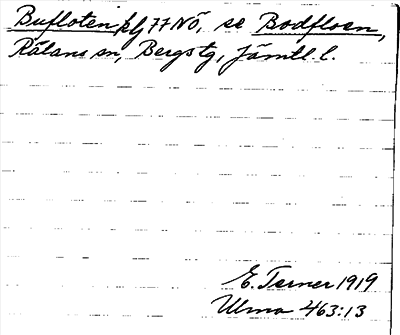 Bufloten blj 77 NÖ, se Bodfloen,
Rätans sn, Bergs tg, Jämtl. l.
E. Terner 1919
Ulma 463:13